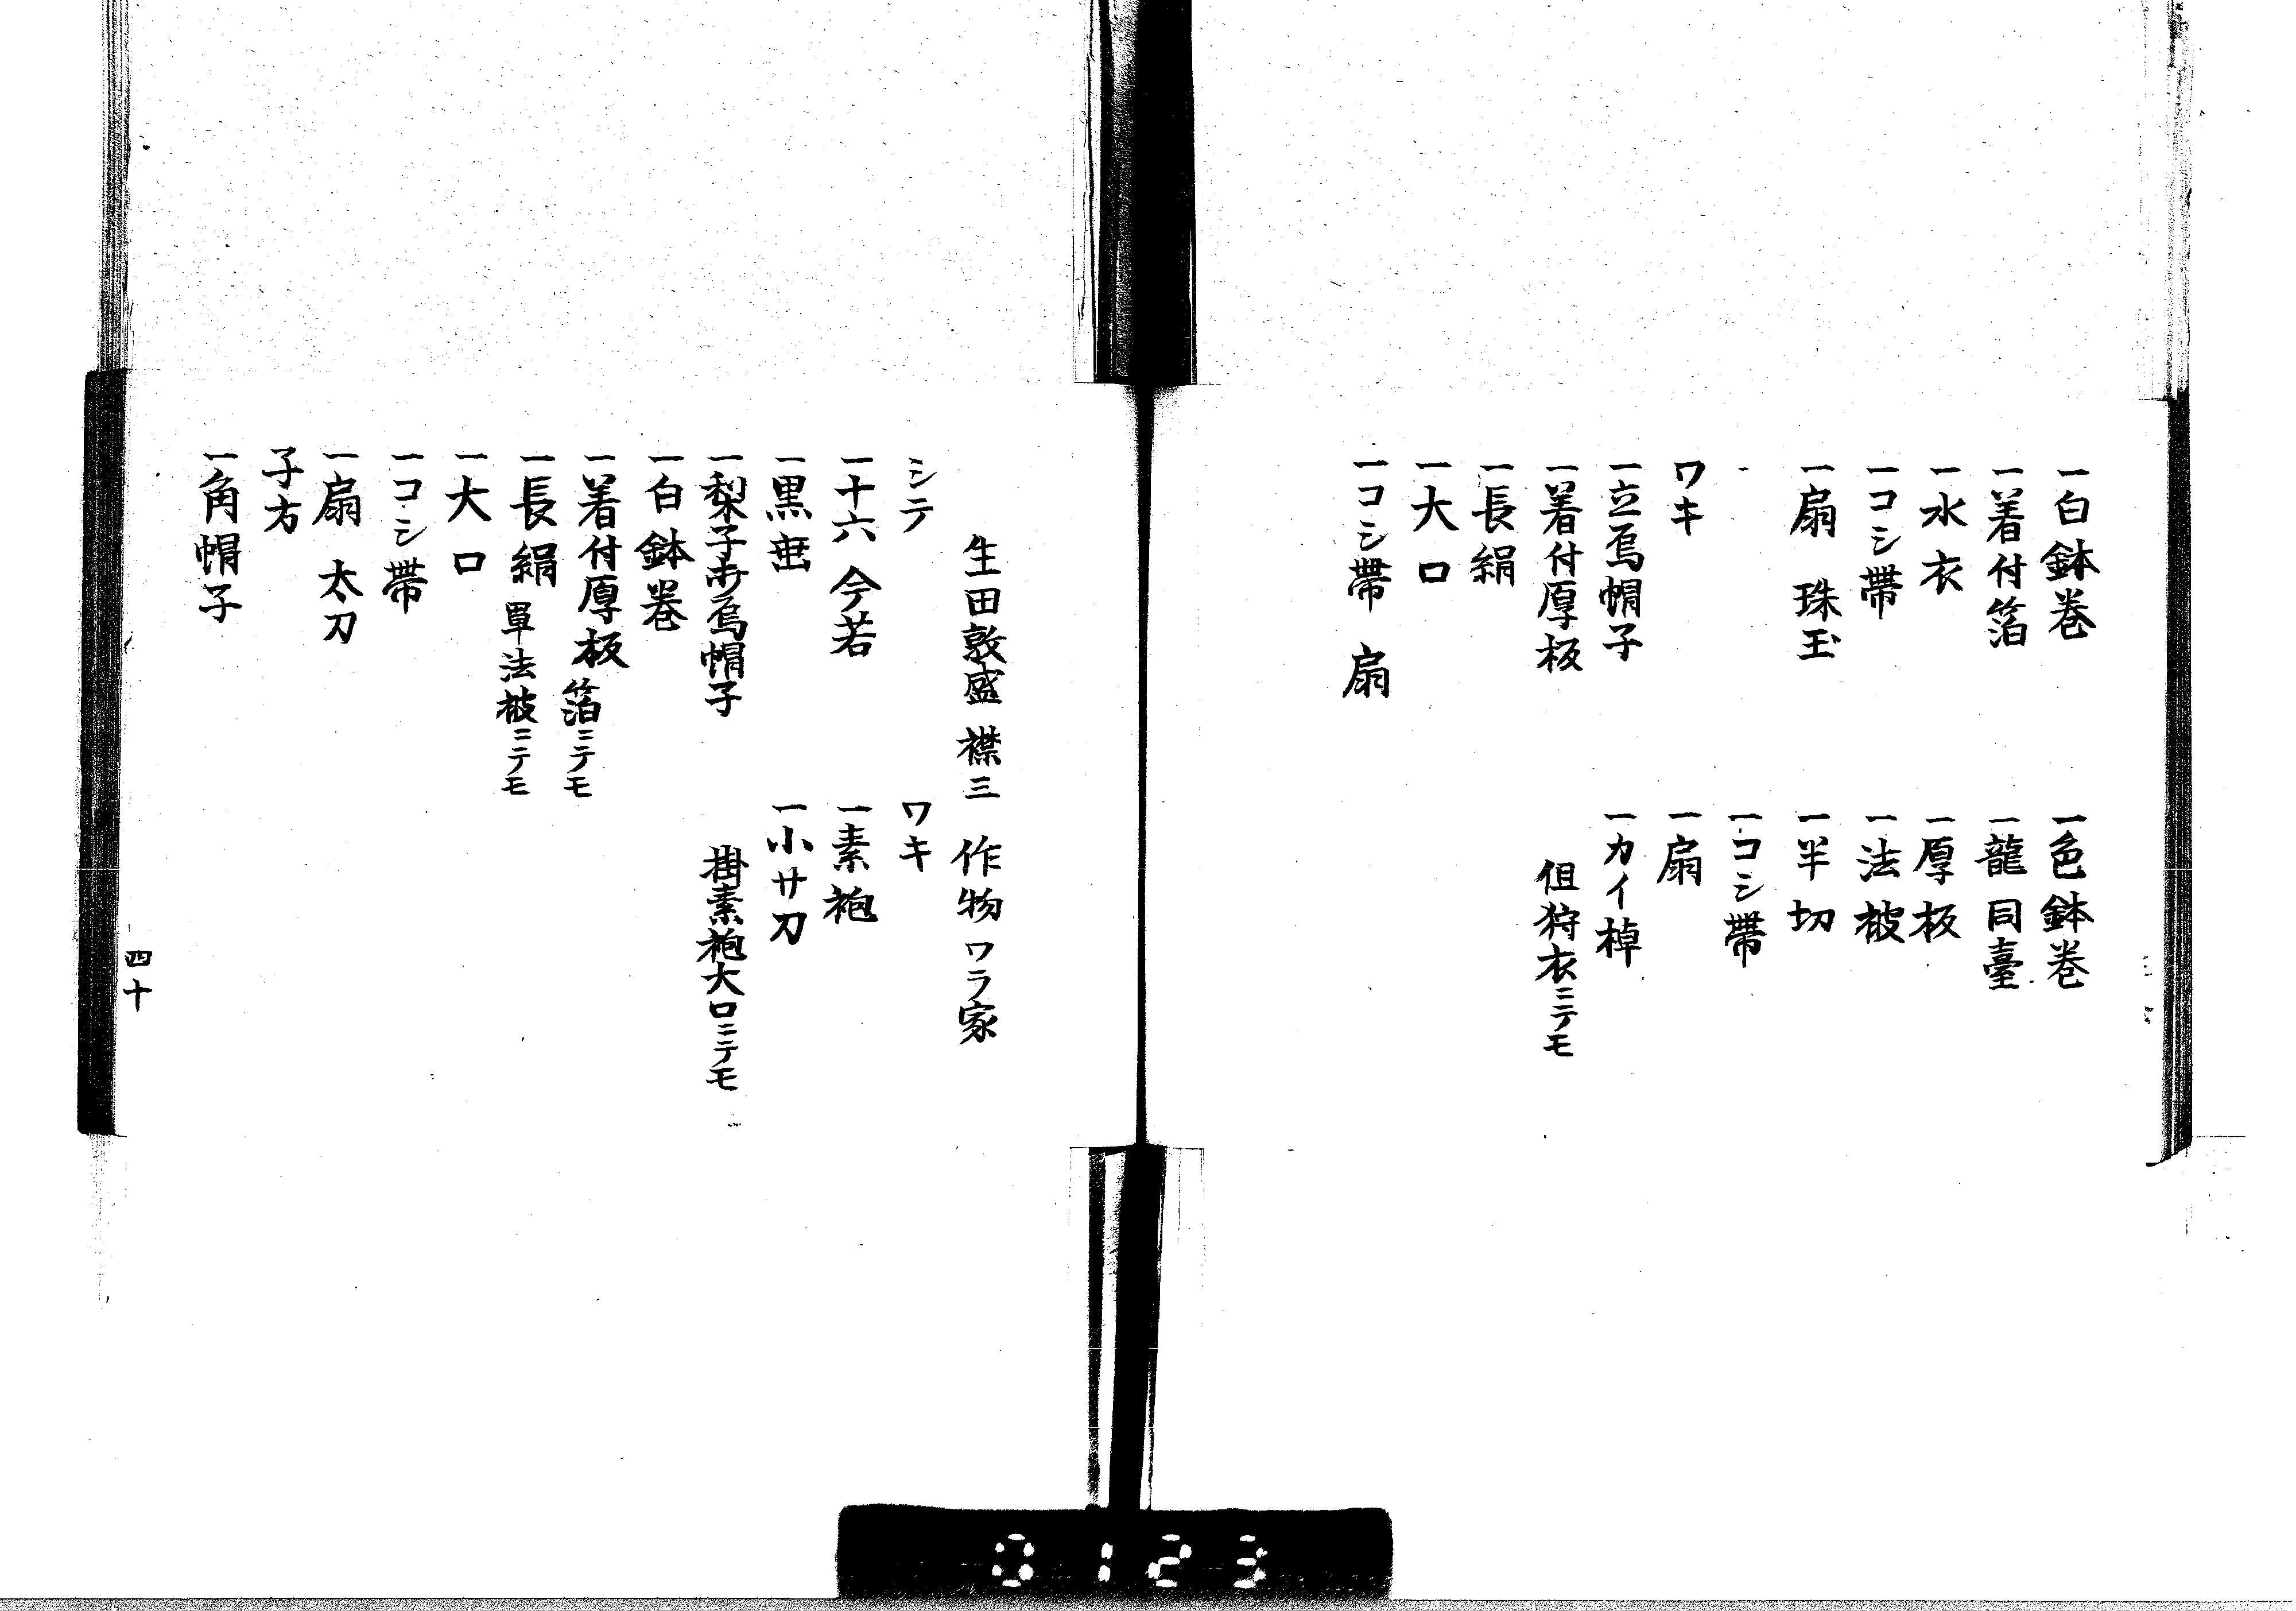 一白鉢巻
一着付箔
一水衣
一コシ帯
一扇 珠玉
ワキ
一立烏帽子
一着付厚板
一長絹
一大口
一コシ帯 扇
一色鉢巻
一龍 同臺
一厚板
一法被
一半切
一コシ帯
一扇
一カイ棹
但狩衣ニテモ
生田敦盛 襟三 作物ワラ家
シテ
一十六 今若
一黒垂
一梨子打烏帽子
一白鉢巻
一着付厚板 箔ニテモ
一長絹 単法被ニテモ
一大口
一コシ帯
一扇 太刀
子方
一角帽子
ワキ
一素袍
一小サ刀
掛素袍大口ニテモ
四十
0123